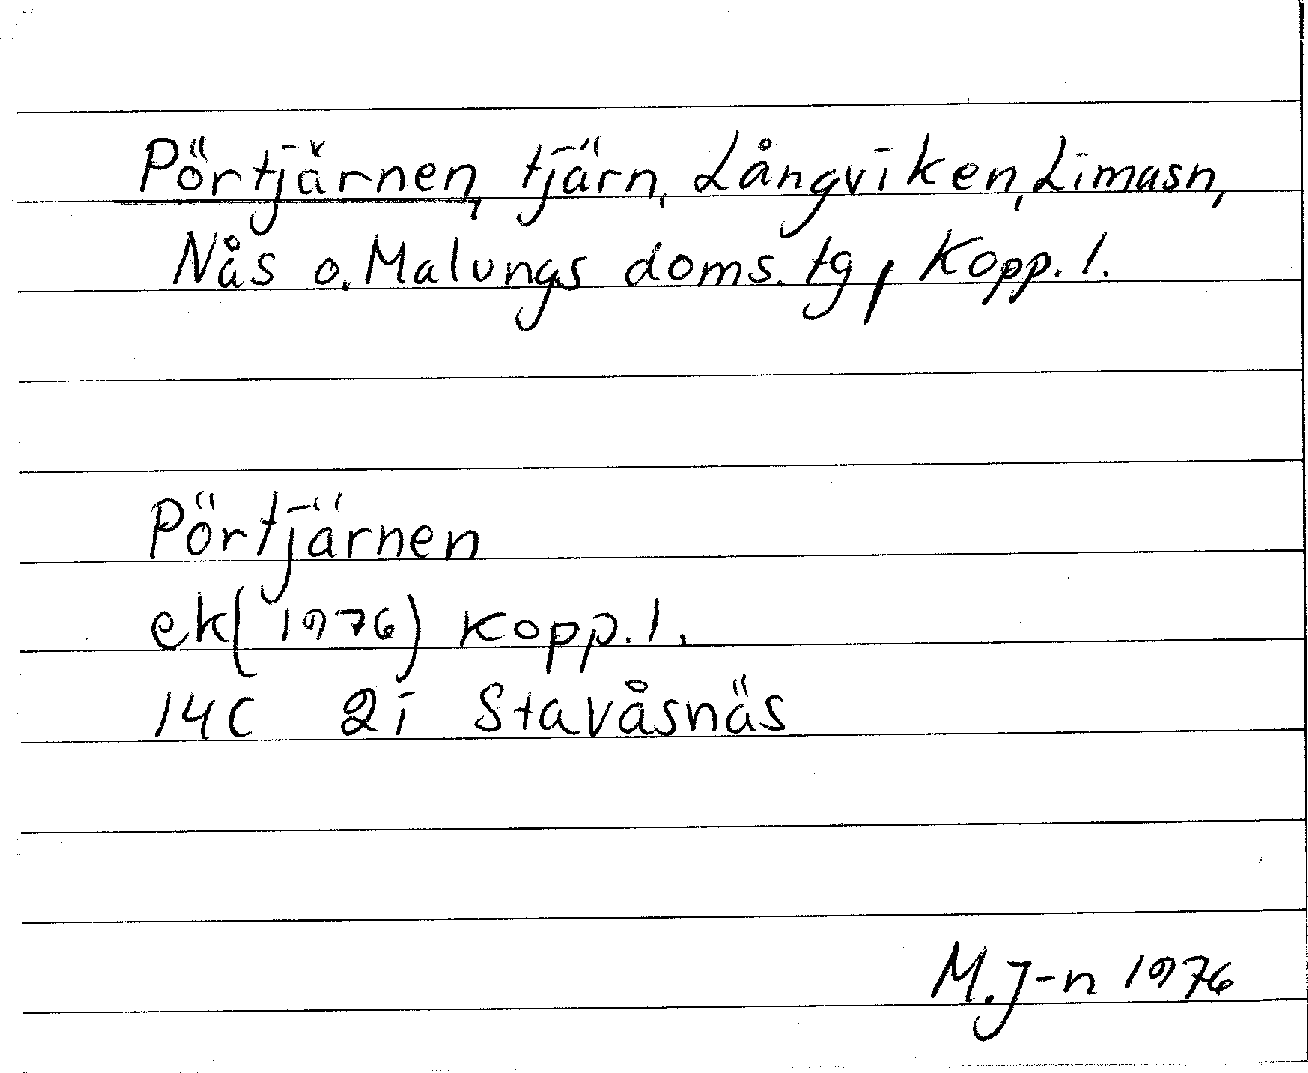 Pörtjärnen, tjärn, Långviken, Lima sn,
Nås o. Malungs doms. tg, Kopp. l.
Pörtjärnen
ek (1976) Kopp. l.
14C 2i Stavåsnäs
M. J-n 1976